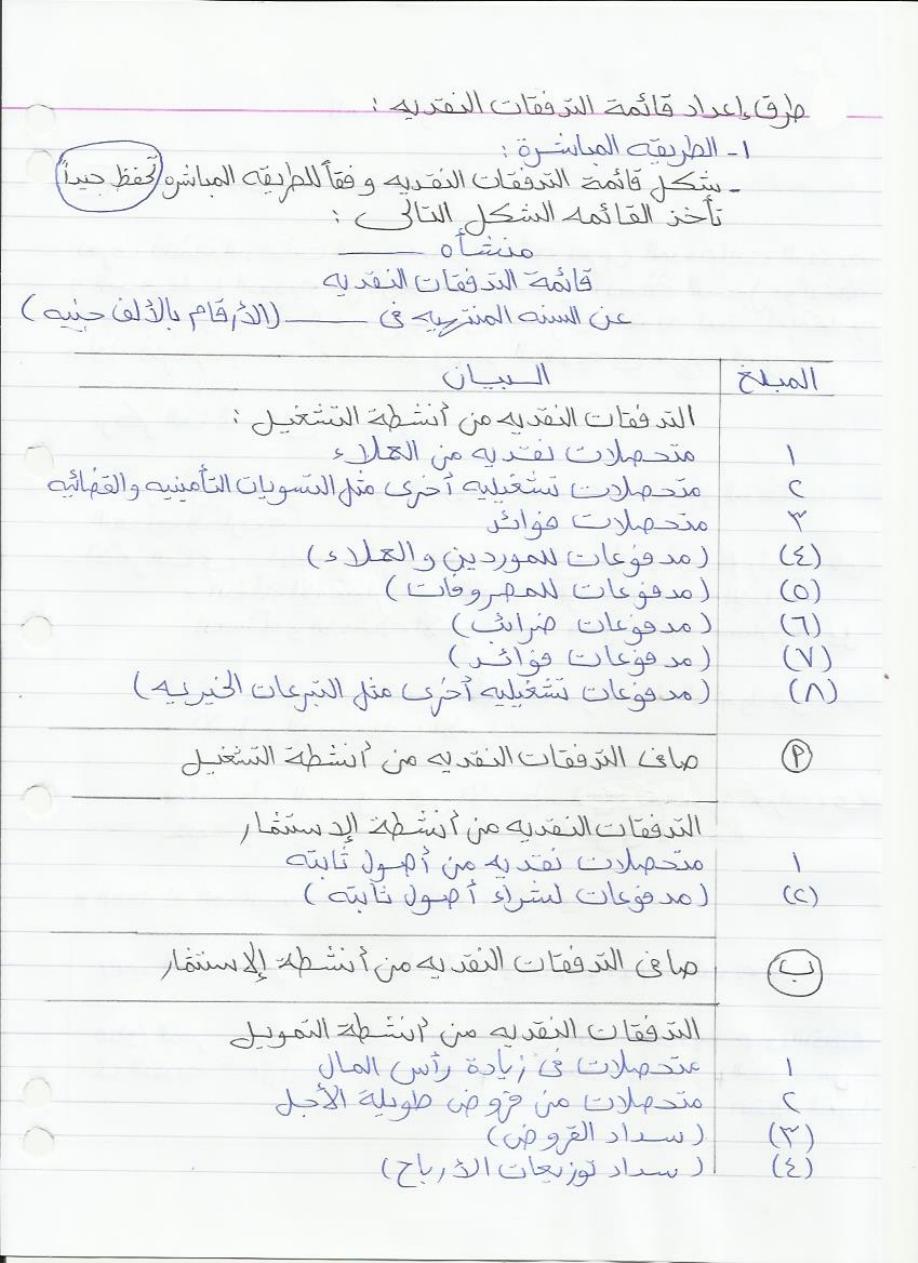 طرق إعداد قائمة التدفقات النقديه :
١- الطريقه المباشرة :
- شكل قائمة التدفقات النقديه وفقاً للطريقه المباشره تحفظ جيداً
تأخذ القائمه الشكل التالى :
منشأه ـــــــ
قائمة التدفقات النقديه
عن السنه المنتهيه فى ـــــــ (الأرقام بالألف جنيه)
المبلغ البيـــان
التدفقات النقديه من أنشطة التشغيل :
١ متحصلات نقديه من العملاء
٢ متحصلات تشغيليه أخرى مثل التسويات التأمينيه والقضائيه
٣ متحصلات فوائد
(٤) (مدفوعات للموردين والعملاء)
(٥) (مدفوعات للمصروفات)
(٦) (مدفوعات ضرائب)
(٧) (مدفوعات فوائد)
(٨) (مدفوعات تشغيليه أخرى مثل التبرعات الخيريه)
أ صافى التدفقات النقديه من أنشطة التشغيل
التدفقات النقديه من أنشطة الإستثمار
١ متحصلات نقديه من أصول ثابته
(٢) (مدفوعات لشراء أصول ثابته)
ب صافى التدفقات النقديه من أنشطة الإستثمار
التدفقات النقديه من أنشطة التمويل
١ متحصلات فى زيادة رأس المال
٢ متحصلات من قروض طويلة الأجل
(٣) (سداد القروض)
(٤) (سداد توزيعات الأرباح)